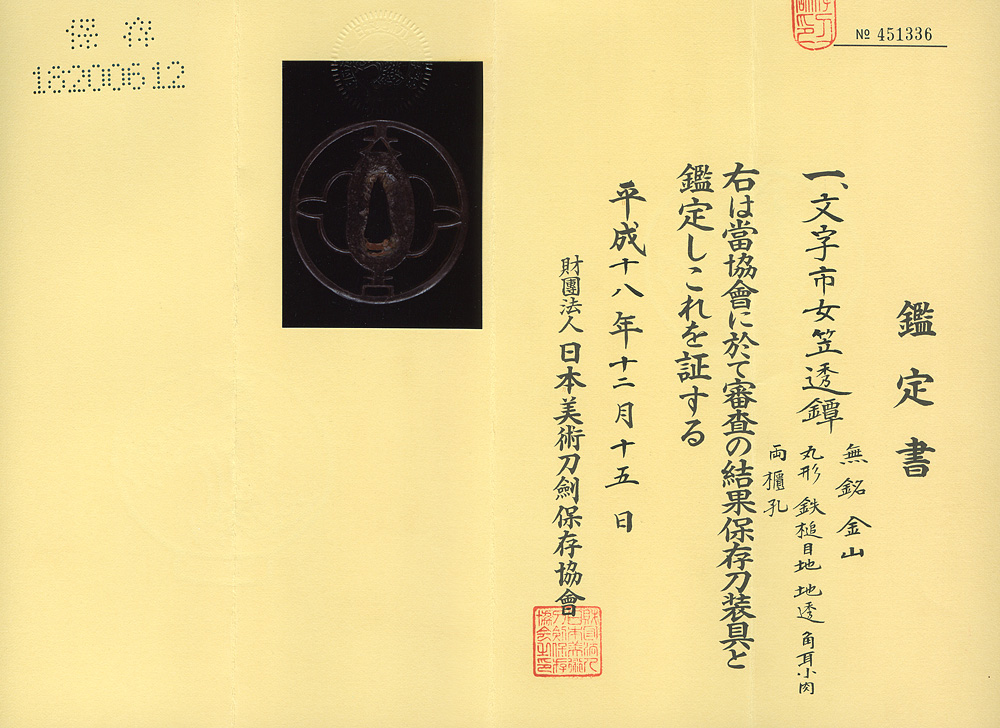 保存
18200612
№ 451336
鑑定書
一、文字市女笠透鐔
無銘 金山
丸形 鉄槌目地 地透 角耳小肉
両櫃孔
右は當協會に於て審査の結果保存刀装具と
鑑定しこれを証する
平成十八年十二月十五日
財團法人 日本美術刀劍保存協會